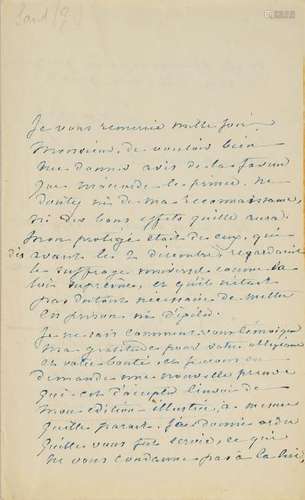 Sand (G)
Je vous remercie mille fois
Monsieur, de vouloir bien
me donner avis de la faveur
que m'accorde le prince. Ne
doutez ni de ma reconnaissance,
ni des bons effets qu'elle aura.
Mon protégé était de ceux, qui
dès avant le 2 décembre regardaient
le suffrage universel comme la
loi suprême, et qu'il n'était
pas du tout nécessaire de mettre
en prison ni d'exiler.
Je ne sais comment vous témoigner
ma gratitude pour votre obligeance
et votre bonté, et je vous en
demande une nouvelle preuve
qui est d'accepter l'envoi de
mon édition illustrée, à mesure
qu'elle paraît. J'ai donné ordre
qu'elle vous fût servie, ce qui
ne vous condamne pas à la lire